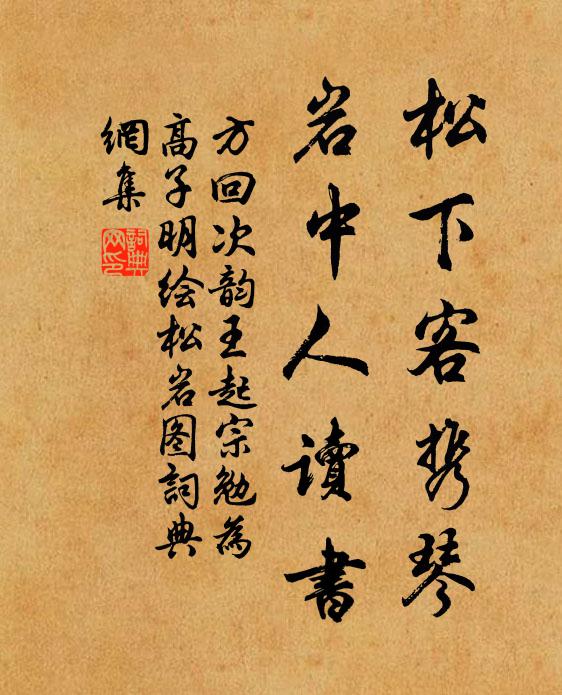 松下客携琴
岩中人讀書
方回次韵王起宗勉為
高子明绘松岩图詞典
網集
詞典網印